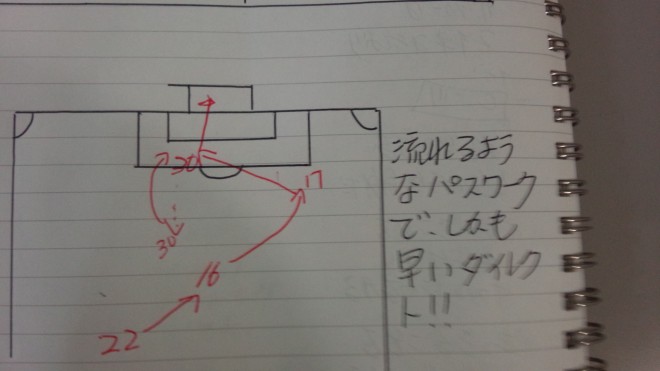 流れるよう
なパスワーク
で、しかも
早いダイレク
ト!!
30
17
30
16
22